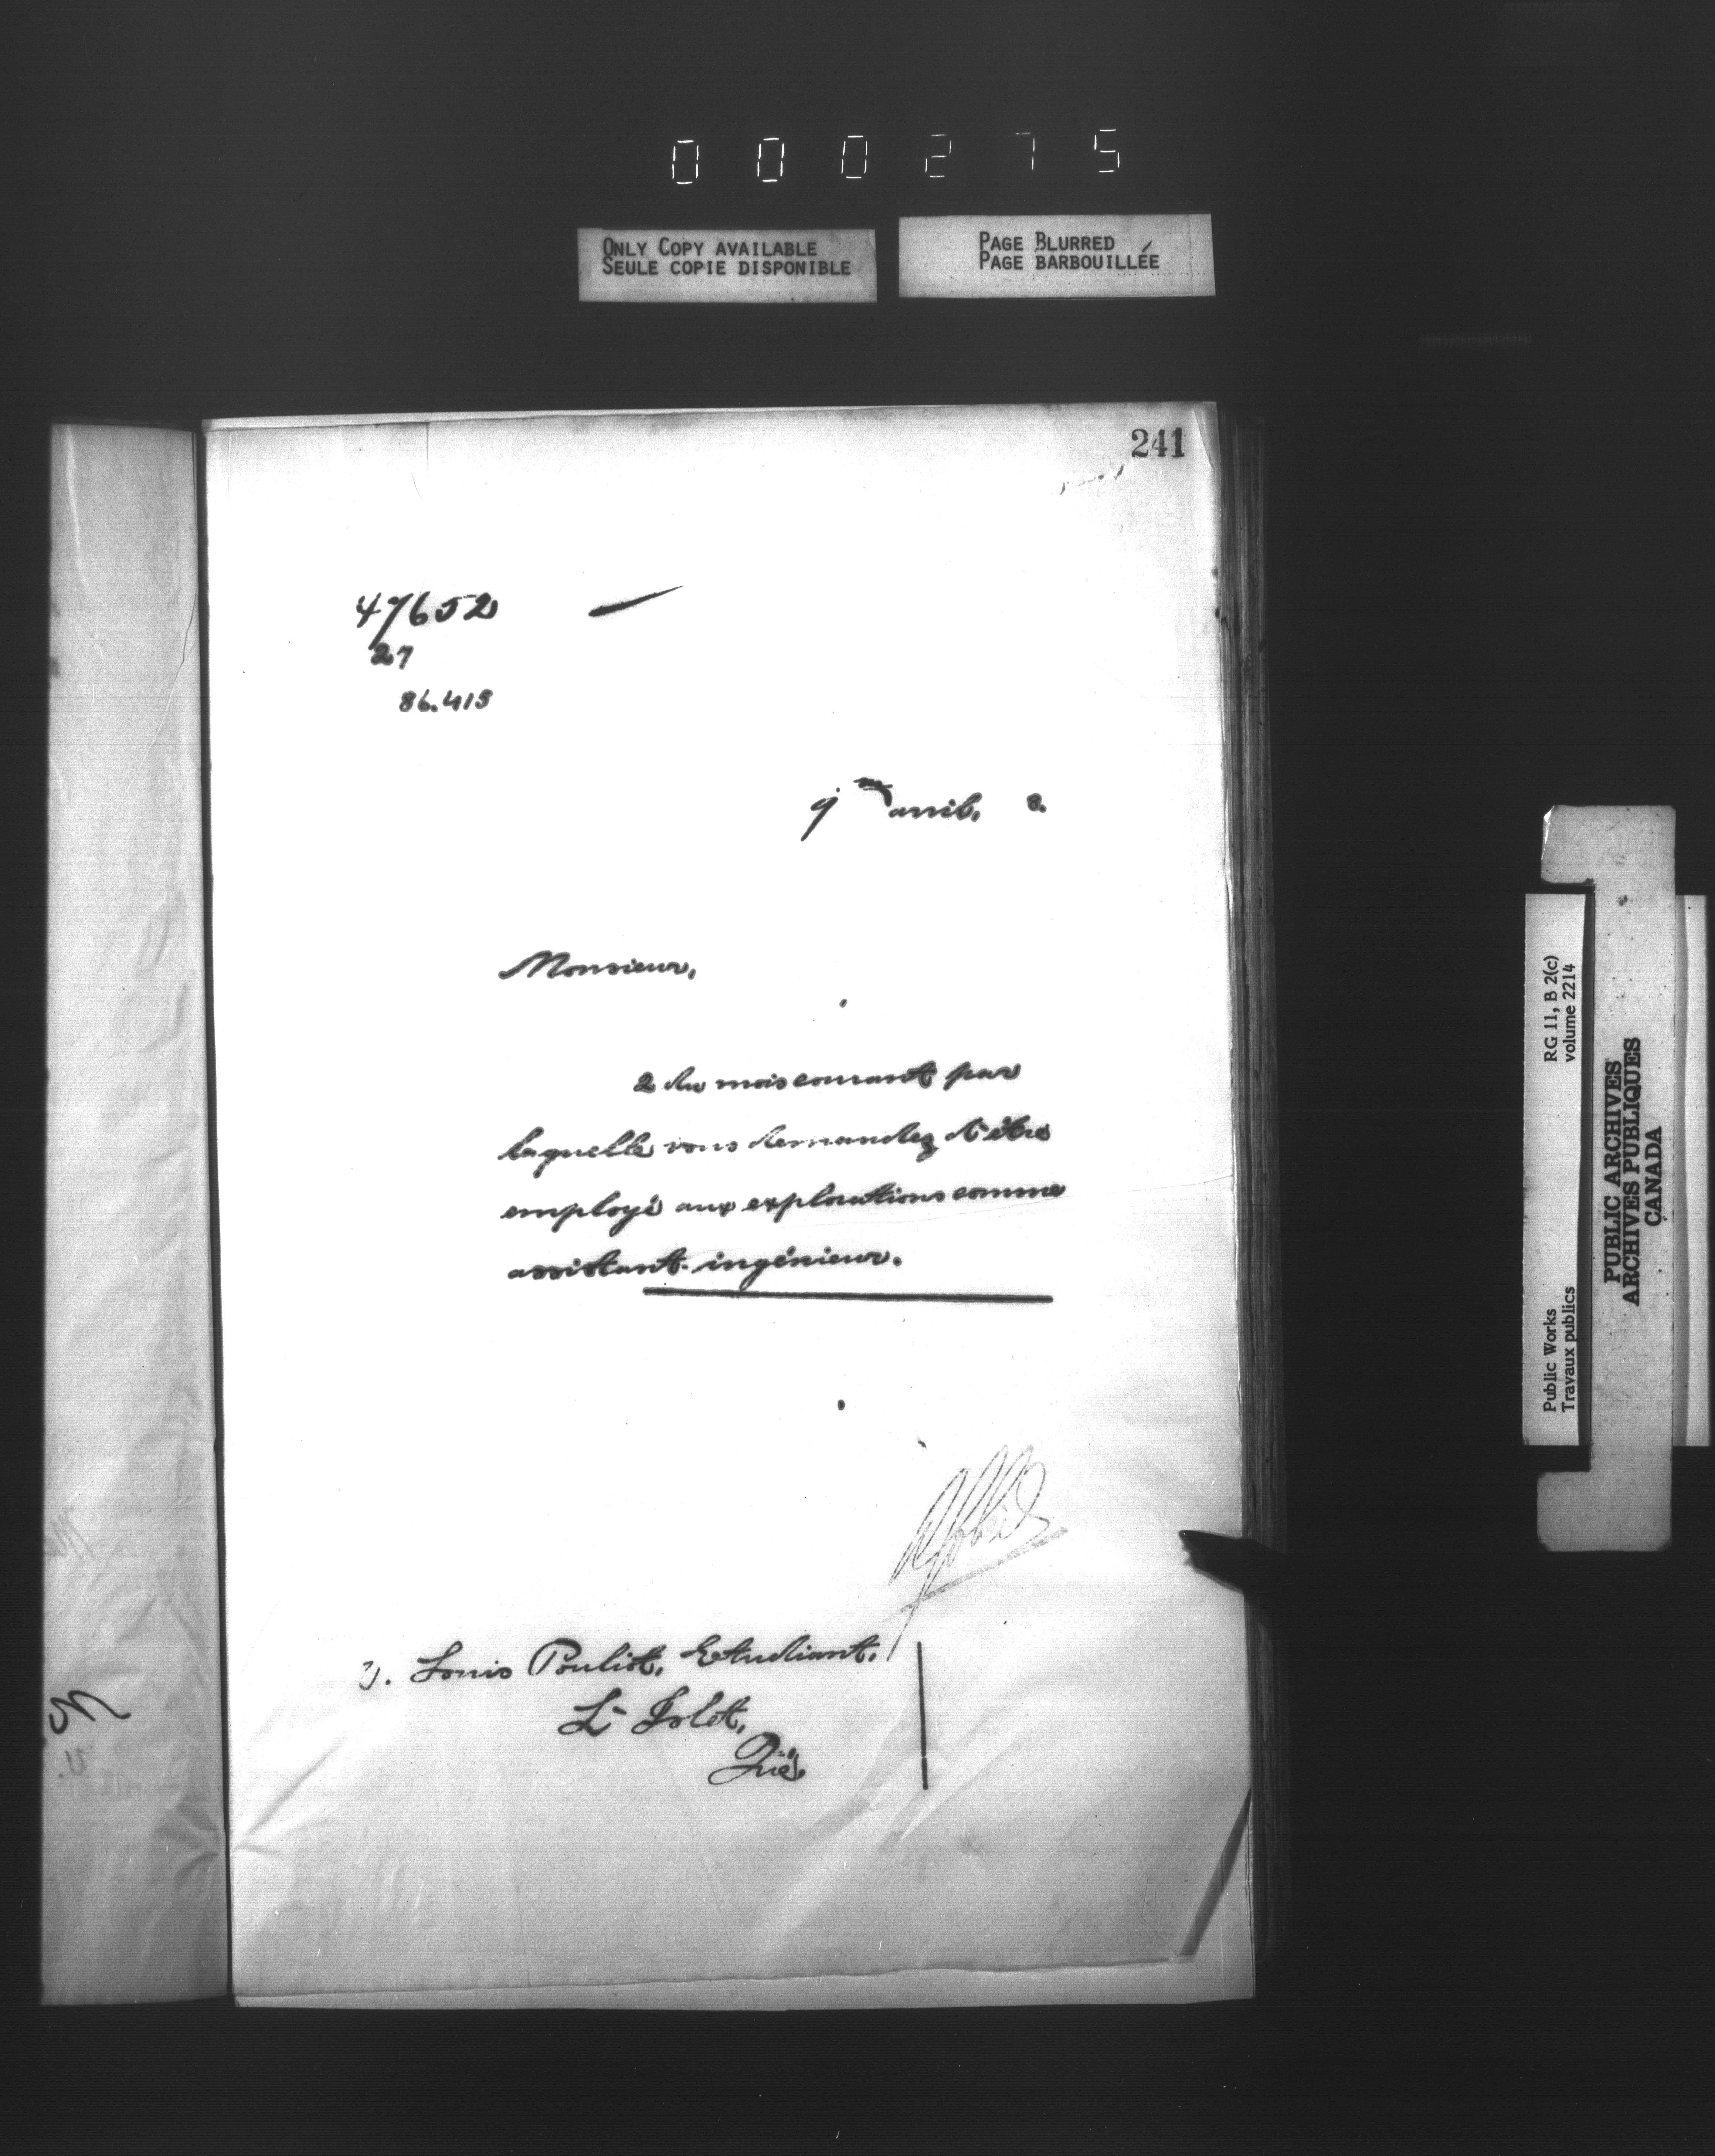 000275
ONLY COPY AVAILABLE
SEULE COPIE DISPONIBLE
PAGE BLURRED
PAGE BARBOUILLÉE
241
47652
27
86.415
9 avril, 8.
Monsieur,
2 du mois courant par
laquelle vous demandez d'être
employé aux explorations comme
assistant-ingénieur.
J. Louis Pouliot, Etudiant,
L'Islet,
Qué.
Public Works
Travaux publics
RG 11, B 2(c)
volume 2214
PUBLIC ARCHIVES
ARCHIVES PUBLIQUES
CANADA